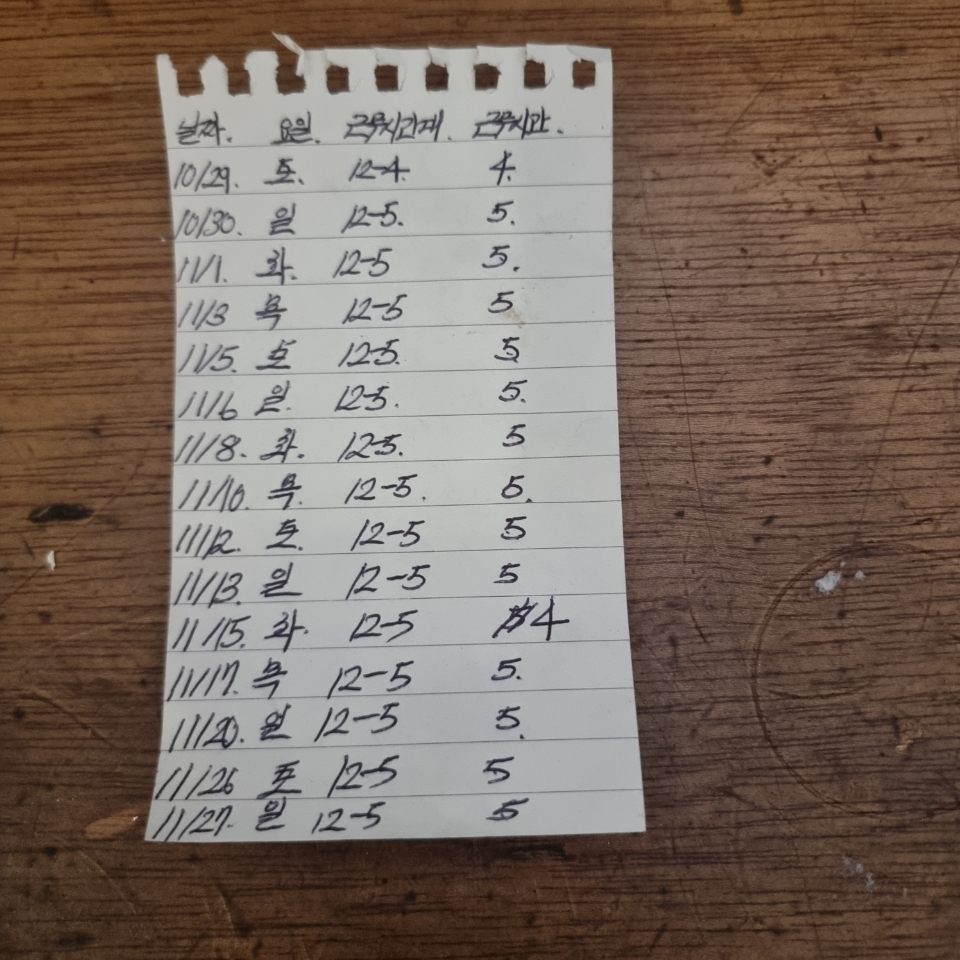 날짜. 요일. 근무시간대. 근무시간.
10/29. 토. 12-4. 4.
10/30. 일 12-5. 5.
11/1. 화. 12-5 5.
11/3 목 12-5 5
11/5. 토 12-5. 5
11/6 일. 12-5. 5.
11/8. 화. 12-5. 5
11/10. 목. 12-5. 5.
11/12. 토. 12-5 5
11/13. 일 12-5 5
11/15. 화. 12-5 4
11/17. 목 12-5 5.
11/20. 일 12-5 5.
11/26 토 12-5 5
11/27. 일 12-5 5